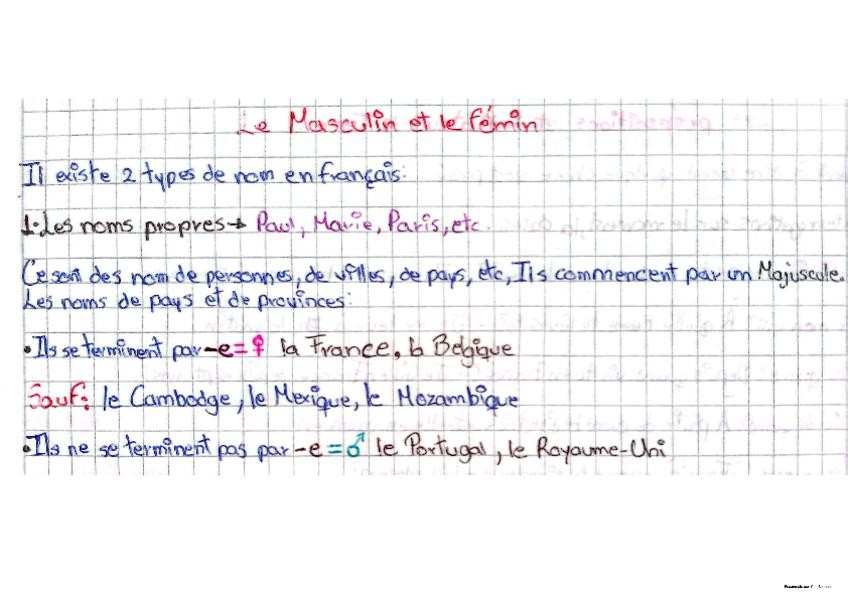 Le Masculin et le fémin
Il existe 2 types de nom en français:
1. Les noms propres → Paul, Marie, Paris, etc.
Ce sont des nom de personnes, de villes, de pays, etc, Ils commencent par un Majuscule.
Les noms de pays et de provinces:
• Ils se terminent par -e = ♀ la France, la Belgique
Sauf: le Cambodge, le Mexique, le Mozambique
• Ils ne se terminent pas par -e = ♂ le Portugal, le Royaume-Uni